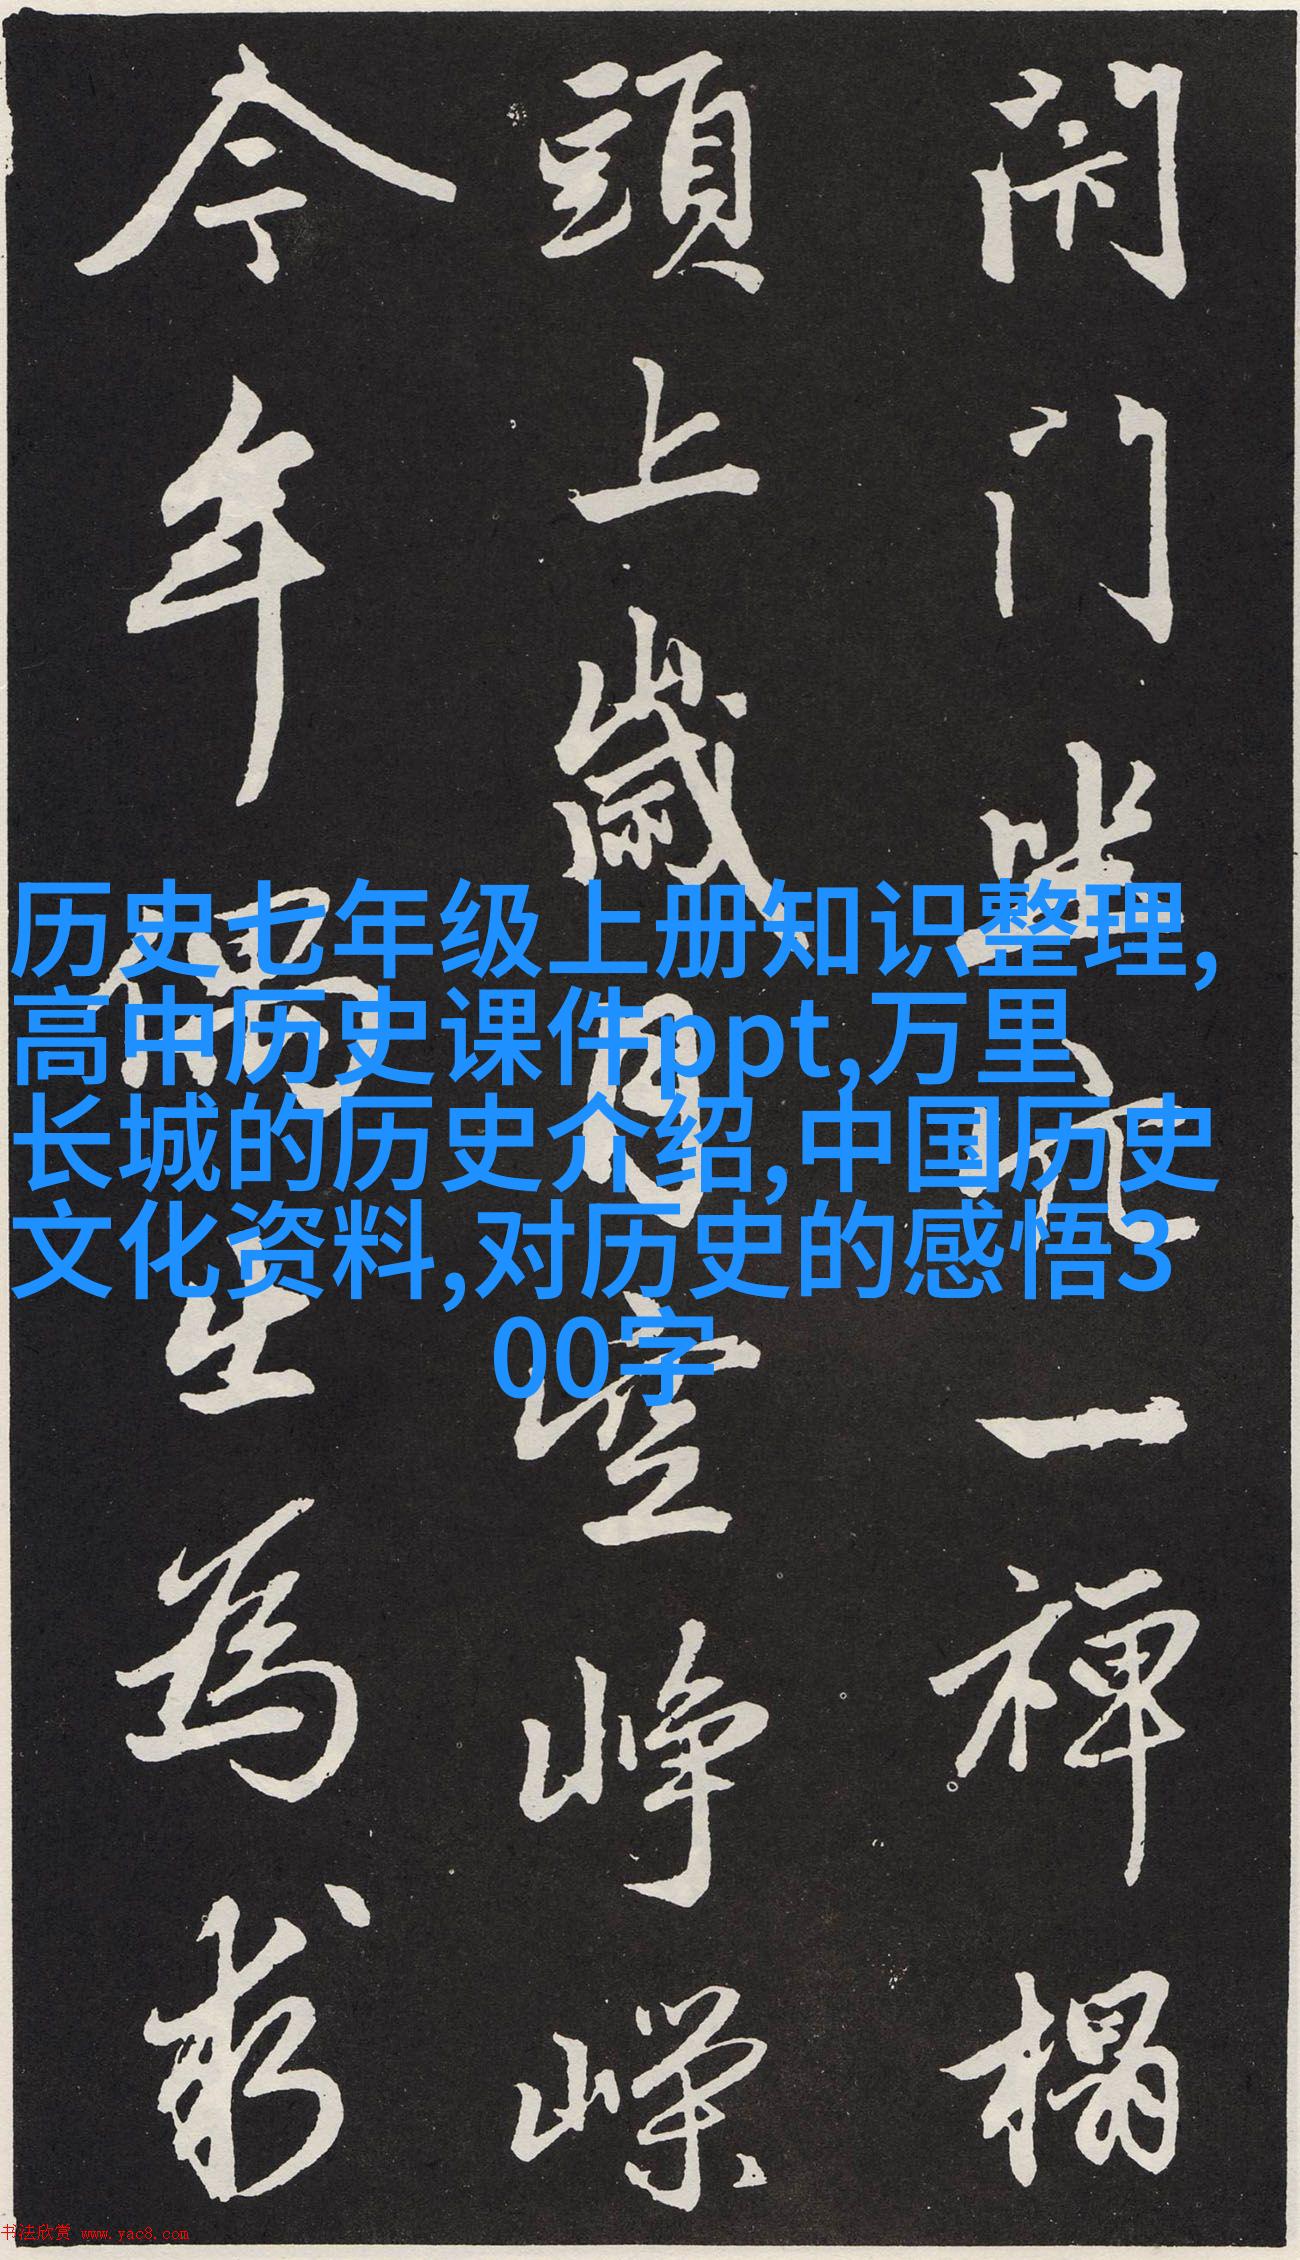 閇门坐穴一禅榻
頭上歲月崆峥嶸
今年偶出為求
历史七年级上册知识整理,
高中历史课件ppt,万里
长城的历史介绍,中国历史
文化资料,对历史的感悟3
00字
书法欣赏 www.yac8.com